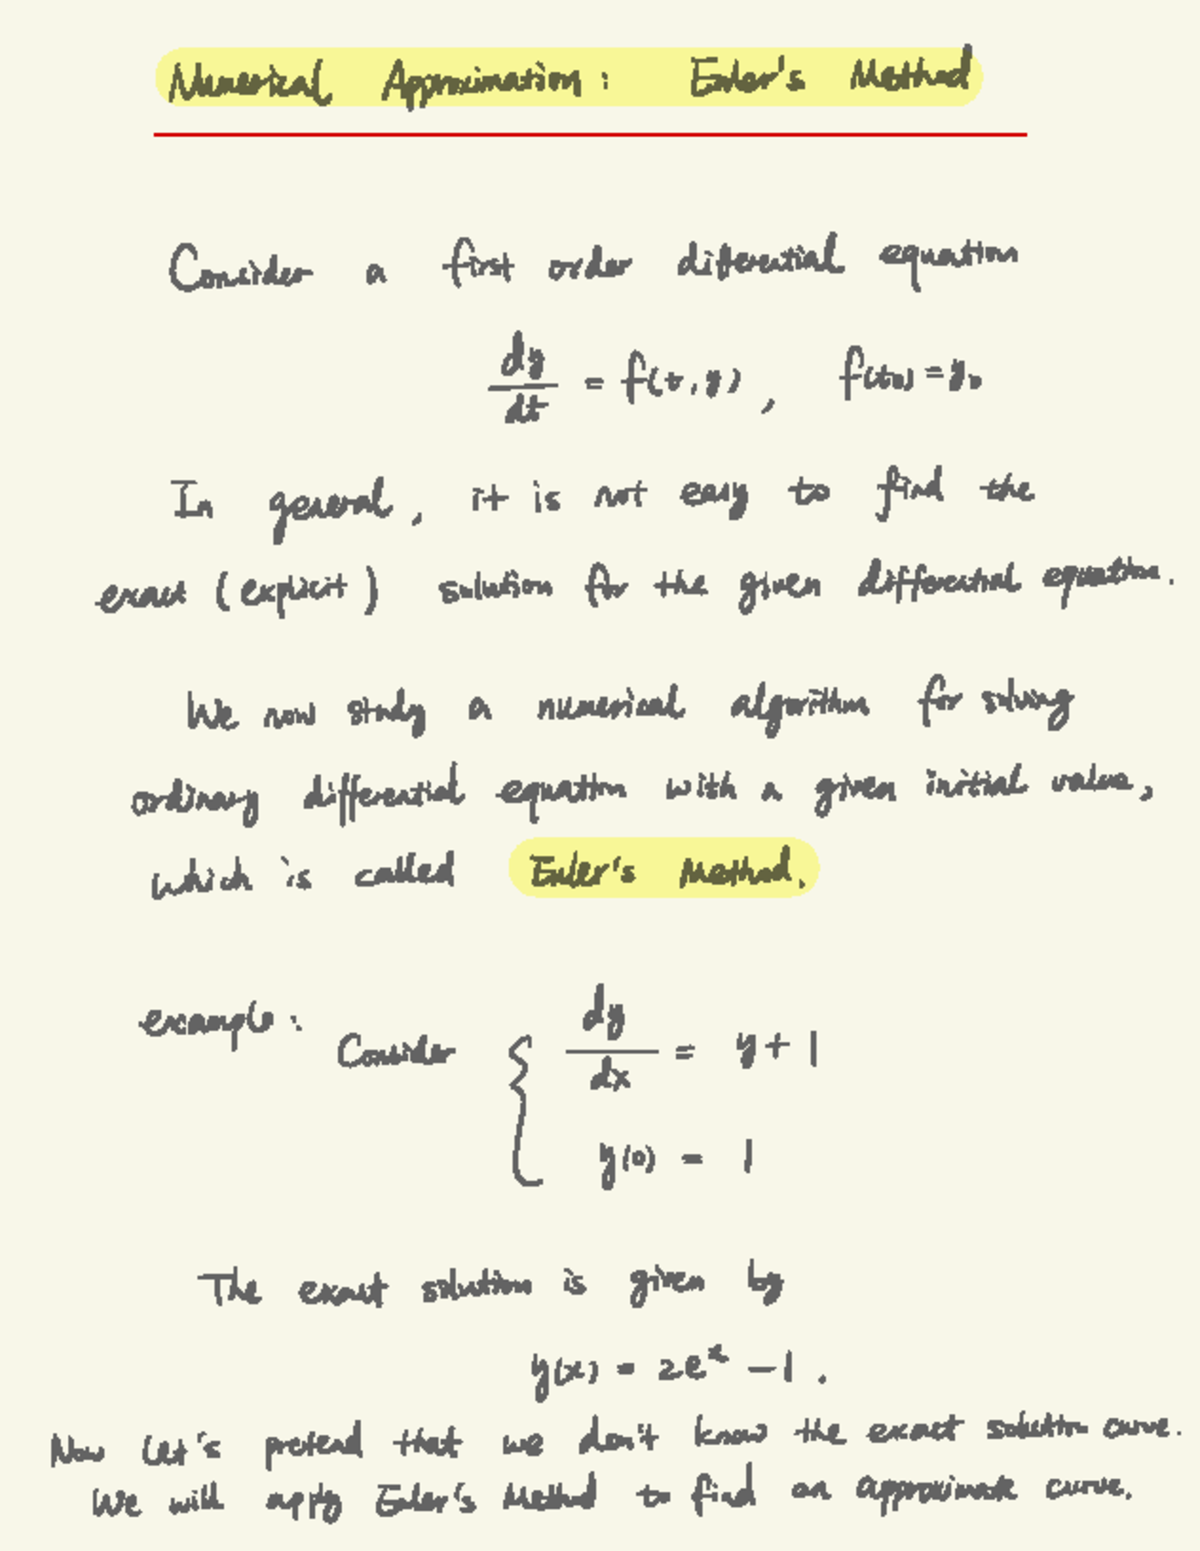 Numerical Approximation: Euler's Method
Consider a first order differential equation
dy/dt = f(t, y), f(t0) = y0
In general, it is not easy to find the
exact (explicit) solution for the given differential equation.
We now study a numerical algorithm for solving
ordinary differential equation with a given initial value,
which is called Euler's Method.
example: Consider { dy/dx = y + 1
y(0) = 1
The exact solution is given by
y(x) = 2e^x - 1.
Now let's pretend that we don't know the exact solution curve.
We will apply Euler's Method to find an approximate curve.